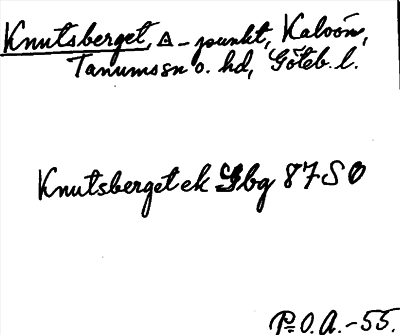 Knutsberget, △-punkt, Kalvön,
Tanums sn o. hd, Göteb. l.
Knutsberget ek Gbg 87 SO
P=O.A.-55.